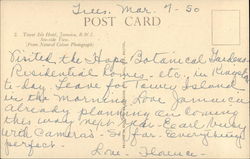 Tues. Mar. 7-50
2. Tower Isle Hotel, Jamaica, B.W.I.
Sea-side View.
From Natural Colour Photograph.
POST CARD
Visited the Hope Botanical Gardens
Residential homes, etc. in Kingston
to-day. Leave for Tower Island
in the morning. Love Jamaica
already planning on coming
this way next year. Carl busy
with cameras. So far everything
perfect.
Love - Florence